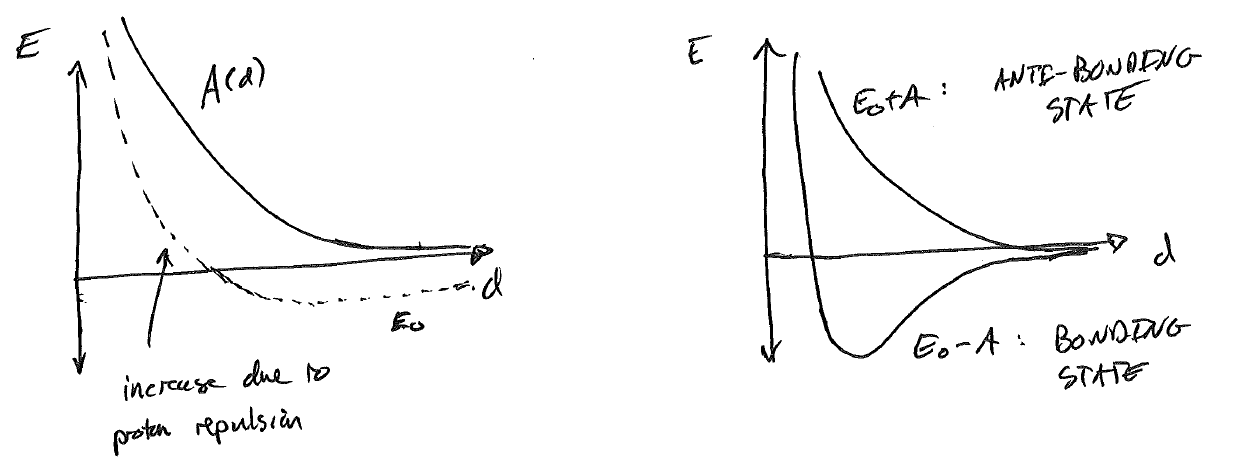 E
A(d)
d
E₀
increase due to
proton repulsion
E
E₀+A : ANTI-BONDING
STATE
d
E₀-A : BONDING
STATE